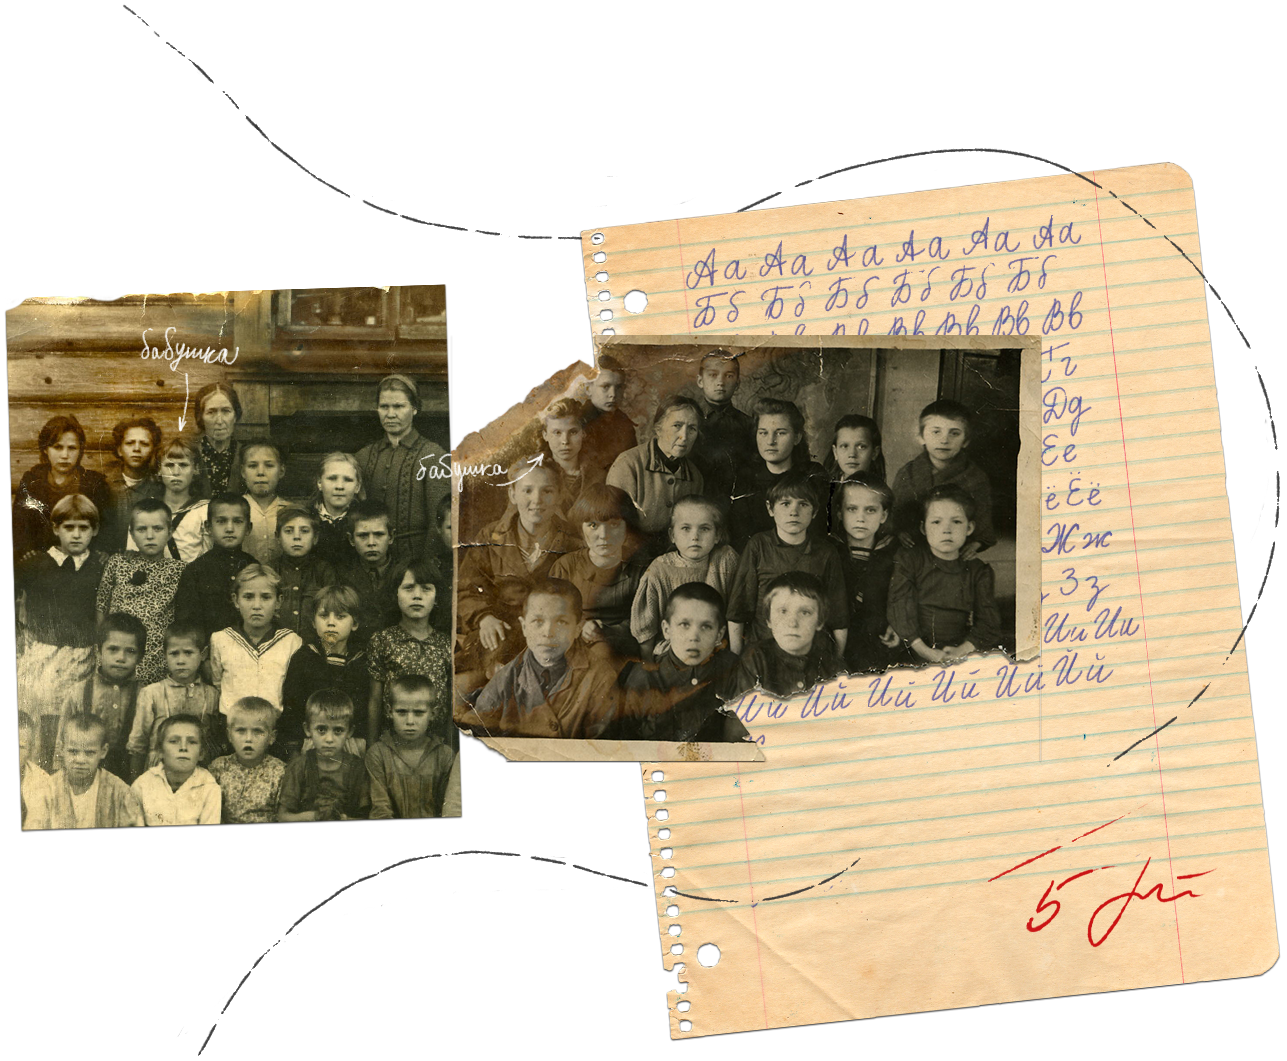 бабушка
бабушка
Аа Аа Аа Аа Аа Аа
Бб Бб Бб Бб Бб Бб
Вв Вв Вв Вв Вв
Гг
Дд
Ее
ё Ёё
Жж
Зз
Ии Ии
Ии Ий Ий Ий Ий Ий
5